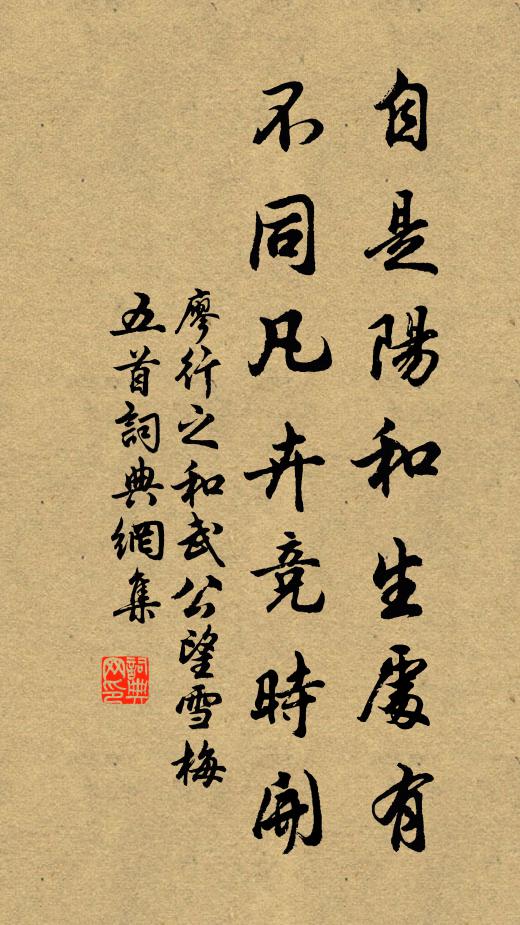 自是陽和生處有
不同凡卉競時開
廖行之和武公望雪梅
五首詞典網集
詞典
网印